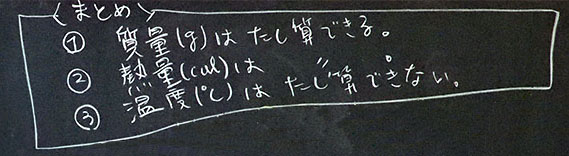 〈まとめ〉
① 質量(g)は たし算できる。
② 熱量(cal)は 〃 。
③ 温度(℃)は たし算できない。